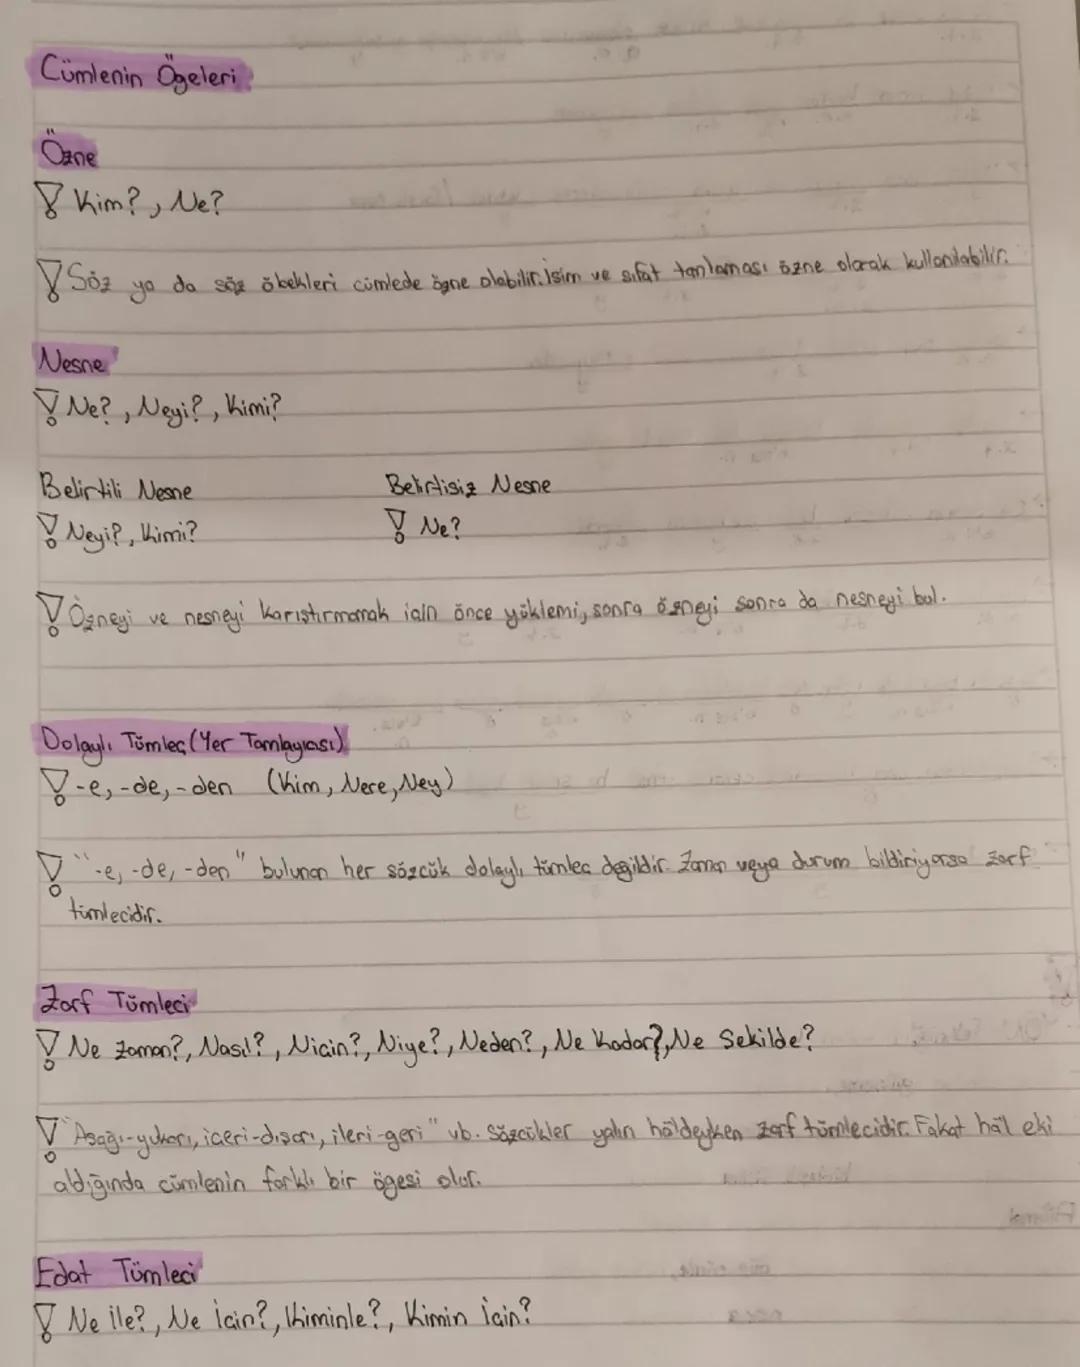 Cümlenin Ögeleri
Özne
Kim?, Ne?
Söz ya da söz öbekleri cümlede ögne olabilir. İsim ve sıfat tamlaması özne olarak kullanılabilir.
Nesne
Ne?, Neyi?, Kimi?
Belirtili Nesne Belirtisiz Nesne
Neyi?, Kimi? Ne?
Özneyi ve nesneyi karıştırmamak için önce yüklemi, sonra özneyi sonra da nesneyi bul.
Dolaylı Tümleç (Yer Tamlayıcısı)
-e, -de, -den (Kim, Nere, Ney)
"-e, -de, -den" bulunan her sözcük dolaylı tümleç değildir. Zaman veya durum bildiriyorsa zarf
tümlecidir.
Zarf Tümleci
Ne Zaman?, Nasıl?, Niçin?, Niye?, Neden?, Ne Kadar?, Ne Şekilde?
"Aşağı-yukarı, içeri-dışarı, ileri-geri" vb. Sözcükler yalın hâldeyken zarf tümlecidir. Fakat hâl eki
aldığında cümlenin farklı bir ögesi olur.
Edat Tümleci
Ne İle?, Ne İçin?, Kiminle?, Kimin İçin?